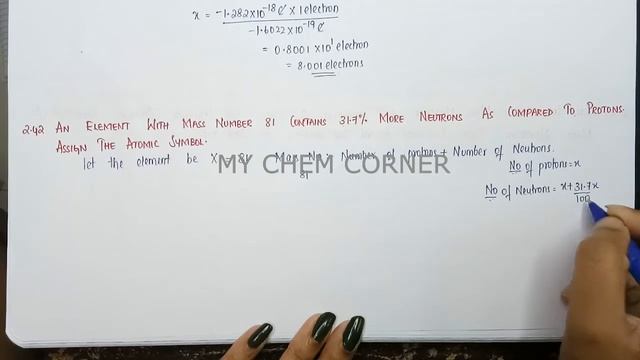 x = -1.282×10⁻¹⁸ C × 1 electron
-1.6022×10⁻¹⁹ C
= 0.8001 ×10¹ electron
= 8.001 electrons
2.42 AN ELEMENT WITH MASS NUMBER 81 CONTAINS 31.7% MORE NEUTRONS AS COMPARED TO PROTONS.
ASSIGN THE ATOMIC SYMBOL.
let the element be X = 81 Mass No = Number of protons + Number of Neutrons.
81
MY CHEM CORNER
No of protons = x
No of Neutrons = x + 31.7x
100